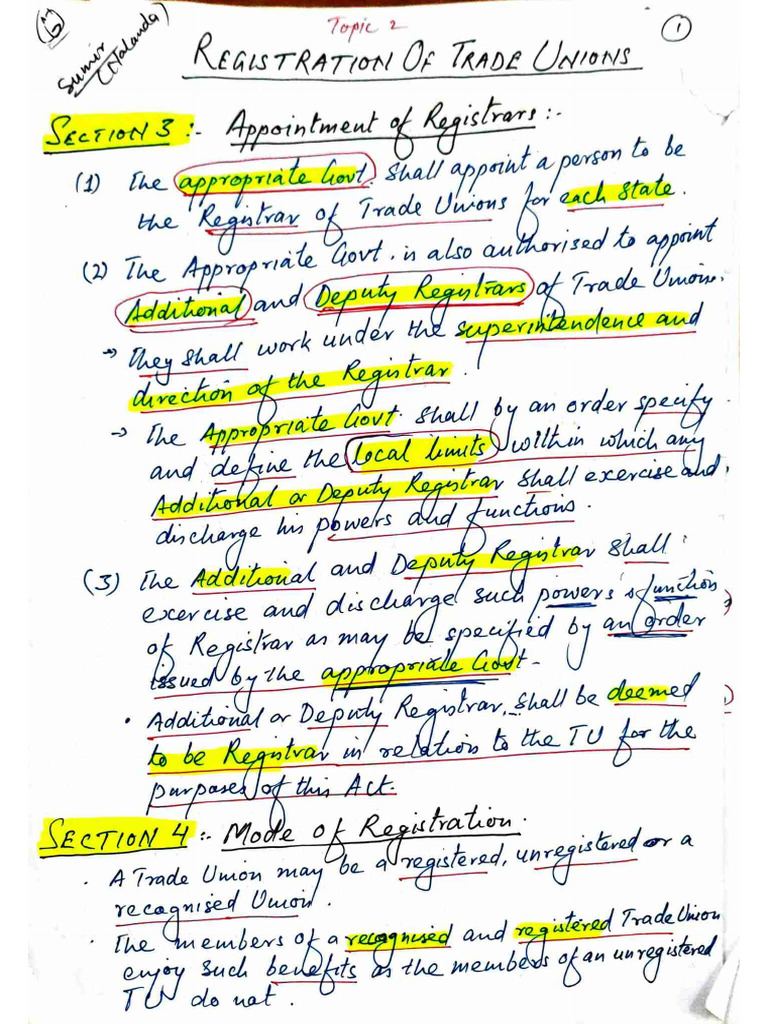 Topic 2
1
Sumir
(Nalanda)
REGISTRATION OF TRADE UNIONS
SECTION 3 :- Appointment of Registrars :-
(1) The appropriate Govt. shall appoint a person to be
the Registrar of Trade Unions for each State.
(2) The Appropriate Govt. is also authorised to appoint
Additional and Deputy Registrars of Trade Union.
→ They shall work under the superintendence and
direction of the Registrar.
→ The Appropriate Govt. shall by an order specify
and define the local limits within which any
Additional or Deputy Registrar shall exercise and
discharge his powers and functions.
(3) The Additional and Deputy Registrar shall
exercise and discharge such powers & function
of Registrar as may be specified by an order
issued by the appropriate Govt-
• Additional or Deputy Registrar, shall be deemed
to be Registrar in relation to the TU for the
purposes of this Act.
SECTION 4 :- Mode of Registration.
• A Trade Union may be a registered, unregistered or a
recognised Union.
• The members of a recognised and registered Trade Union
enjoy such benefits as the members of an unregistered
TU do not.